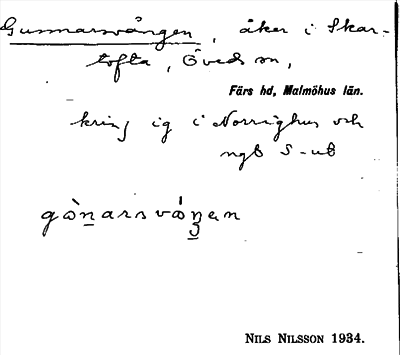 Gunnarsvången, åker i Skar-
tofta, Öveds sn,
Färs hd, Malmöhus län.
kring ig i Norrighus och
ngt S-ut
gὼn̲arsvάŋ̲ən
NILS NILSSON 1934.